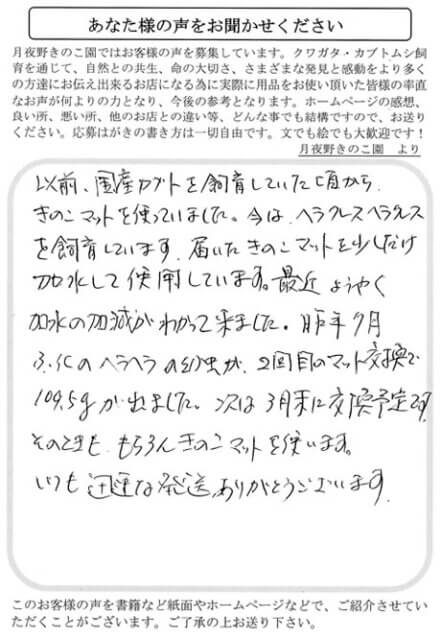 あなた様の声をお聞かせください
月夜野きのこ園ではお客様の声を募集しています。クワガタ・カブトムシ飼
育を通じて、自然との共生、命の大切さ、さまざまな発見と感動をより多く
の方達にお伝え出来るお店になる為に実際に用品をお使い頂いた皆様の率直
なお声が何よりの力となり、今後の参考となります。ホームページの感想、
良い所、悪い所、他のお店との違い等、どんな事でも結構ですので、お送り
ください。応募はがきの書き方は一切自由です。文でも絵でも大歓迎です！
月夜野きのこ園　より
以前、国産カブトを飼育していた頃から、
きのこマットを使っていました。今は、ヘラクレスヘラクレス
を飼育しています。届いたきのこマットを少しだけ
加水して使用しています。最近ようやく
加水の加減がわかって来ました。昨年9月
のヘラヘラの幼虫が、2回目のマット交換で
109.5gが出ました。次は3月末に交換予定です。
そのときも、もちろんきのこマットを使います。
いつも迅速な発送、ありがとうございます。
このお客様の声を書籍など紙面やホームページなどで、ご紹介させてい
ただくことがございます。ご了承の上お送り下さい。